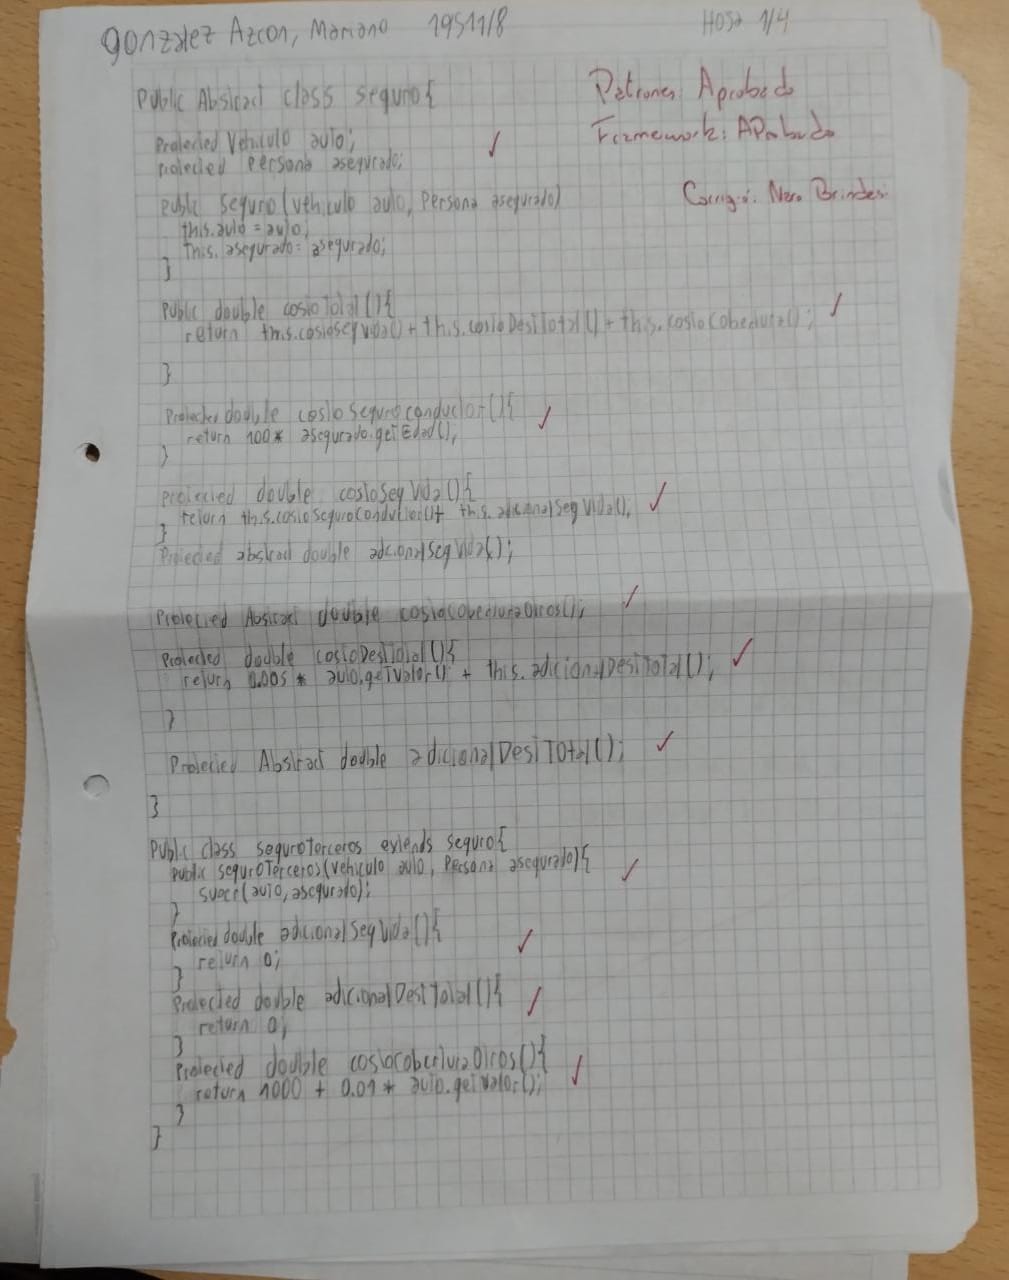 Gonzalez Azcon, Mariano 19511/8 Hoja 1/4
Patrones Aprobado
Framework: Aprobado
Corrigió: Nero Brindesi
Public Abstract class seguro{
Protected Vehiculo auto;
protected Persona asegurado;
public Seguro(vehiculo auto, Persona asegurado)
this.auto = auto;
this.asegurado = asegurado;
}
Public double costoTotal(){
return this.costoSegVida() + this.costoDestTotal() + this.costoCobertura();
}
Protected double costoSeguroConductor(){
return 100 * asegurado.getEdad();
}
protected double costoSegVida(){
return this.costoSeguroConductor()+ this.adicionalSegVida();
}
Protected abstract double adicionalSegVida();
Protected Abstract double costoCoberturaOtros();
Protected double costoDestTotal(){
return 0.005 * auto.getValor() + this.adicionalDestTotal();
}
Protected Abstract double adicionalDestTotal();
}
Public class seguroTerceros extends seguro{
public seguroTerceros(vehiculo auto, Persona asegurado){
super(auto, asegurado);
}
Protected double adicionalSegVida(){
return 0;
}
Protected double adicionalDestTotal(){
return 0;
}
Protected double costoCoberturaOtros(){
return 1000 + 0.01 * auto.getValor();
}
}